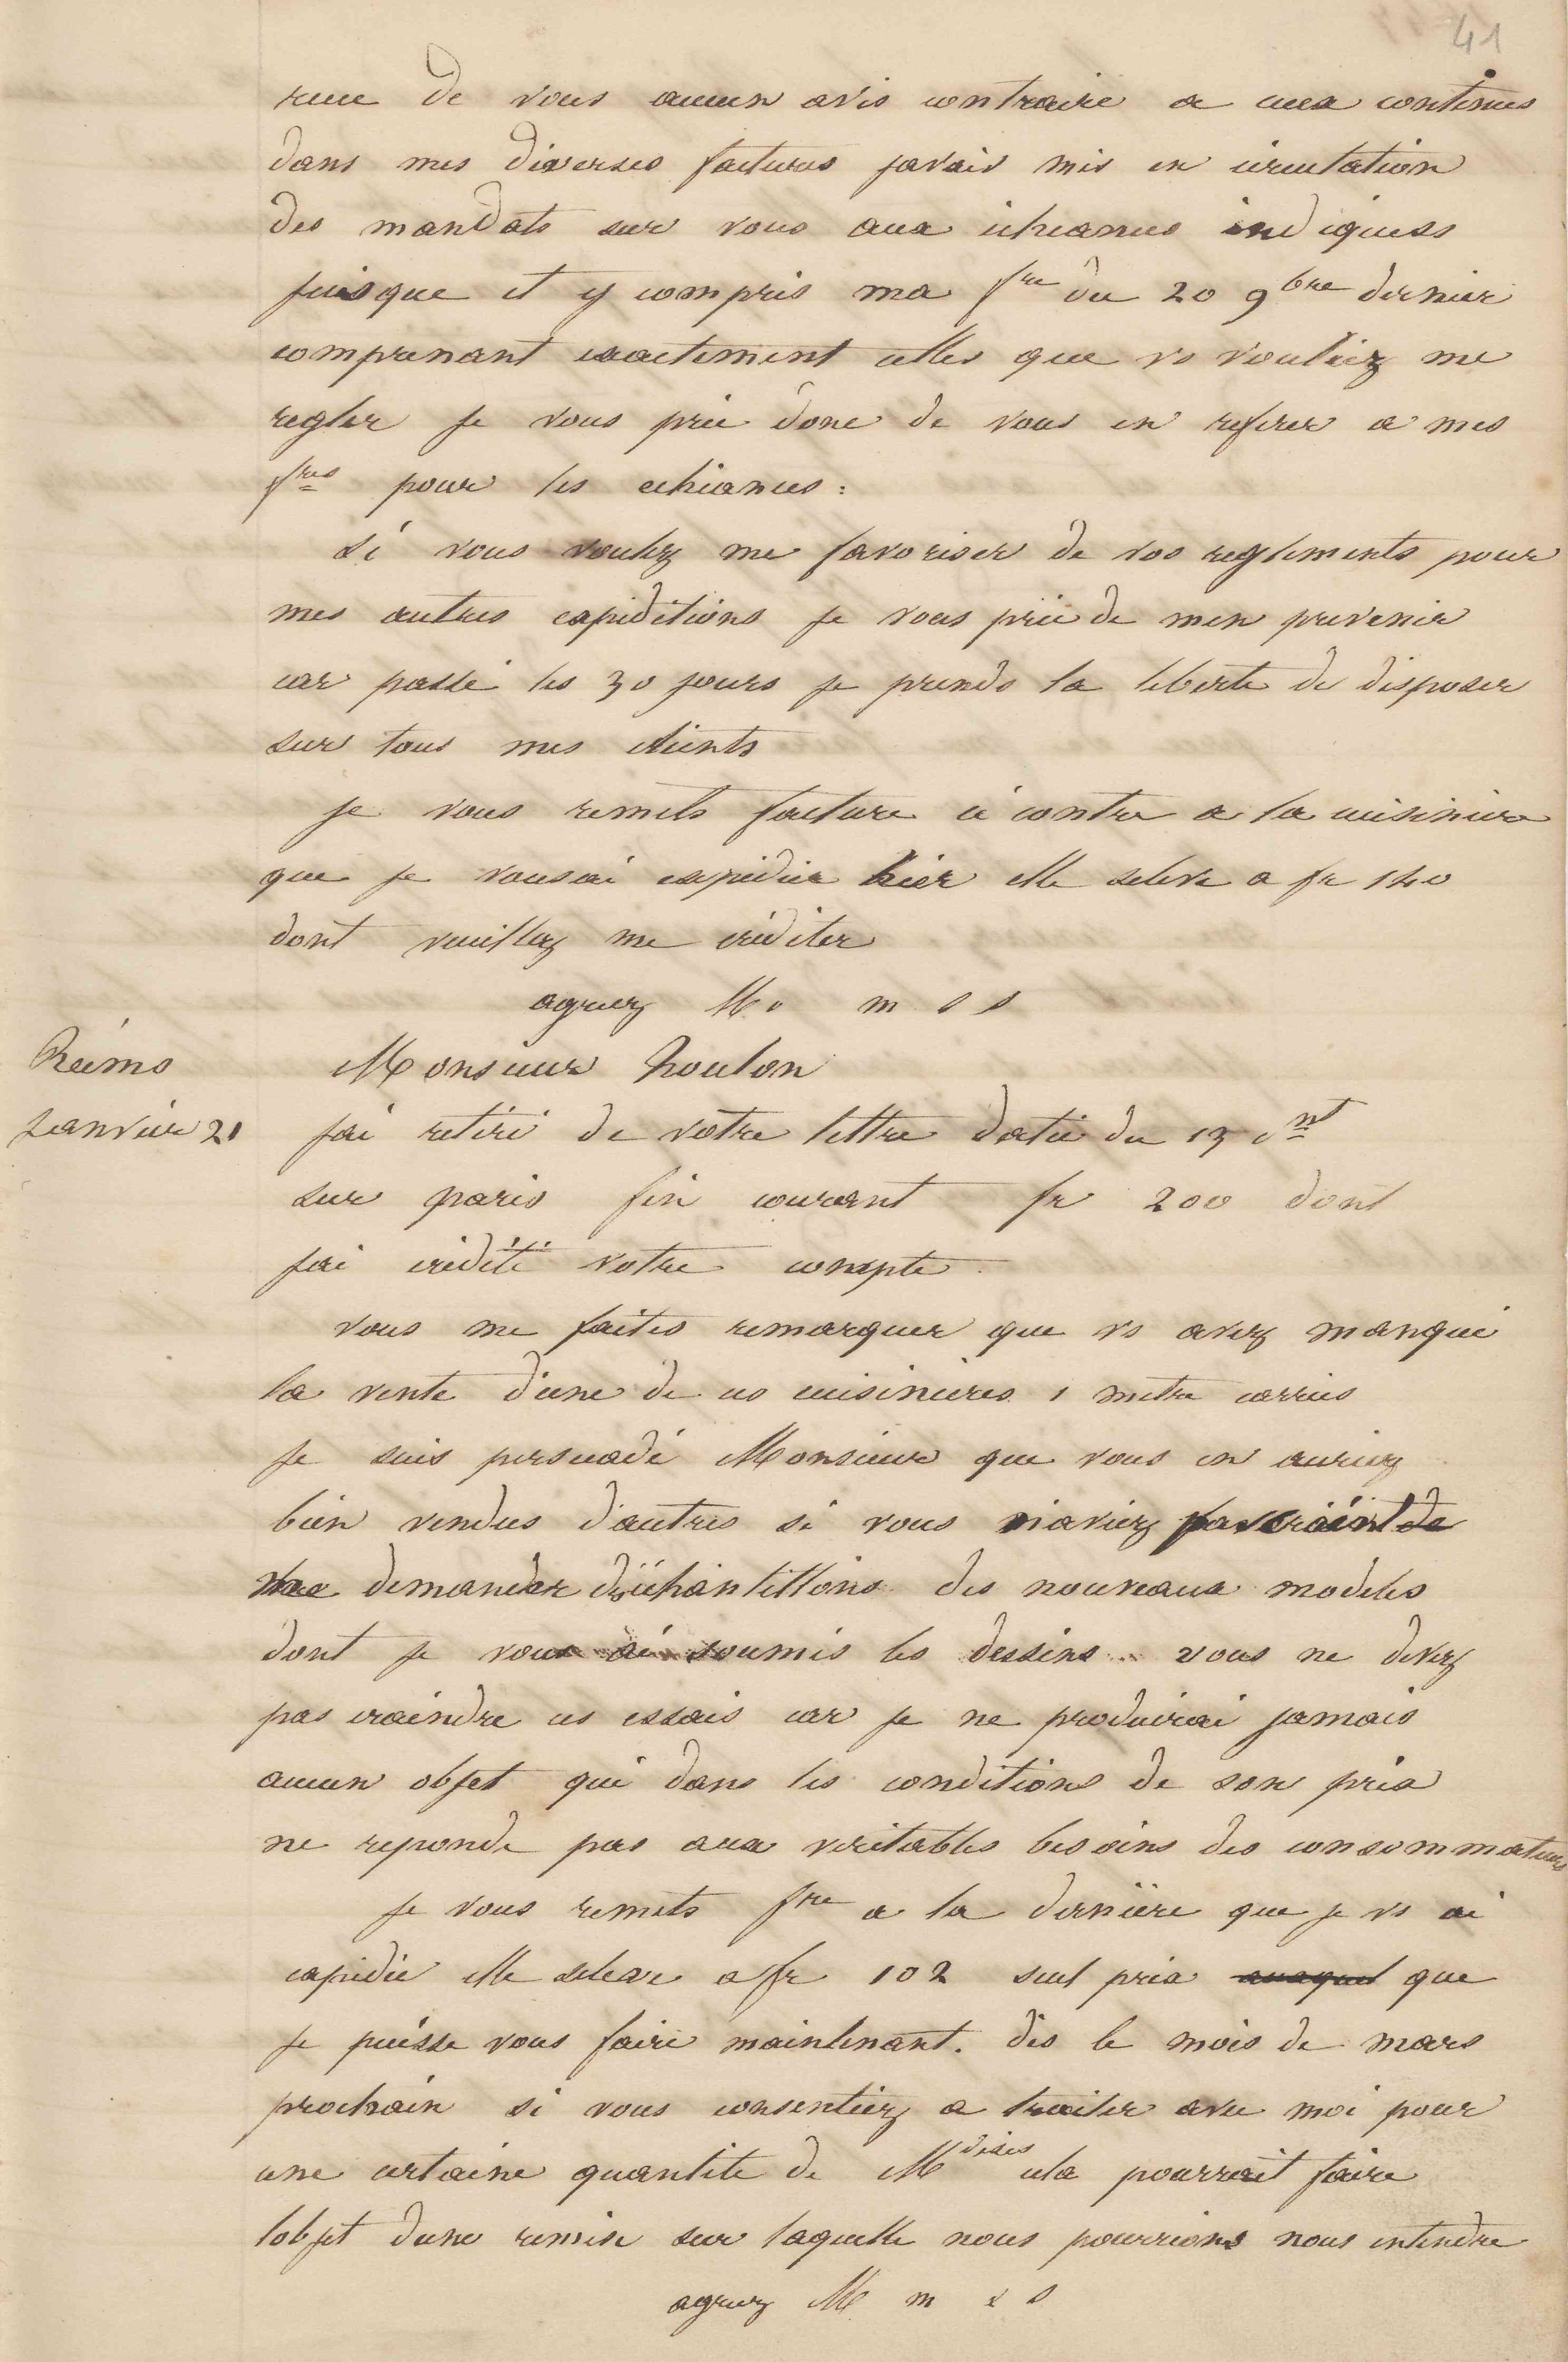 41
recu de vous aucun avis contraire a ceux contenus
dans mes diverses factures javais mis en circulation
des mandats sur vous aux écheances indiquees
puisque et y compris ma fre du 20 9bre dernier
comprenant exactement celles que vs vouliez me
regler je vous prie donc de vous en referer a mes
fres pour les echeances :
si vous voulez me favoriser de vos reglements pour
mes autres expeditions je vous prie de men prevenir
car passé les 30 jours je prends la liberte de disposer
sur tous mes clients
je vous remets facture ci contre a la cuisiniere
que je vous ai expediee hier elle seleve a fr 140
dont veuillez me créditer
agreez Mr m s s
Reims
Janvier 21
Monsieur Houlon
jai retiré de votre lettre datée du 13 cnt
sur paris fin courant fr 200 dont
jai crédité votre compte
vous me faites remarquer que vs avez manqué
la vente d'une de ces cuisinieres 1 metre carrées
je suis persuadé Monsieur que vous en auriez
bien vendus d'autres si vous maviez pas craint de
me demander déchantillons des nouveaux modeles
dont je vous ai soumis les dessins vous ne devez
pas craindre ces essais car je ne produirai jamais
aucun objet qui dans les conditions de son prix
ne reponde pas aux veritables besoins des consommateurs
je vous remets fre a la derniere que je vs ai
expediée elle seleve a fr 102 seul prix auquel que
je puisse vous faire maintenant. dès le mois de mars
prochain si vous consentiez a traiter avec moi pour
une certaine quantite de Mdises cela pourrait faire
lobjet dune remise sur laquelle nous pourrions nous entendre
agreez M m s s